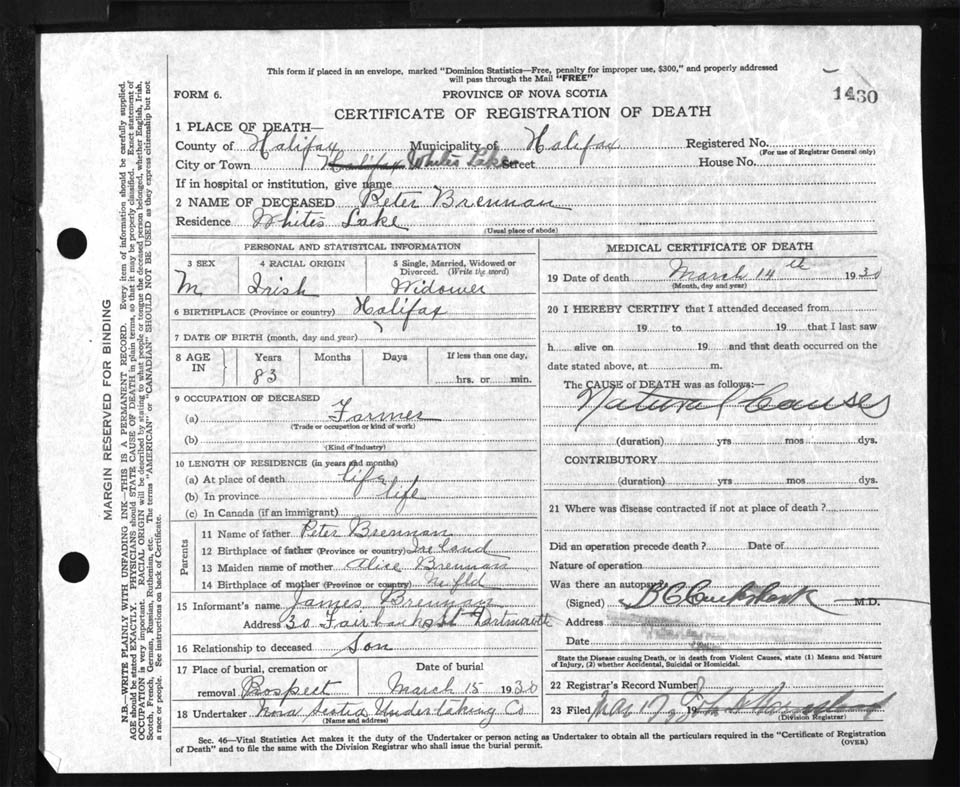 This form if placed in an envelope, marked "Dominion Statistics—Free, penalty for improper use, $300," and properly addressed
will pass through the Mail "FREE"
FORM 6.
PROVINCE OF NOVA SCOTIA
1430
CERTIFICATE OF REGISTRATION OF DEATH
1 PLACE OF DEATH—
County of Halifax Municipality of Halifax Registered No.
(For use of Registrar General only)
City or Town Halifax Whites Lake Street House No.
If in hospital or institution, give name
2 NAME OF DECEASED Peter Brennan
Residence Whites Lake
(Usual place of abode)
PERSONAL AND STATISTICAL INFORMATION
3 SEX 4 RACIAL ORIGIN 5 Single, Married, Widowed or
Divorced. (Write the word)
M Irish Widower
6 BIRTHPLACE (Province or country) Halifax
7 DATE OF BIRTH (month, day and year)
8 AGE IN Years Months Days If less than one day,
83 hrs. or min.
9 OCCUPATION OF DECEASED
(a) Farmer
(Trade or occupation or kind of work)
(b)
(Kind of industry)
10 LENGTH OF RESIDENCE (in years and months)
(a) At place of death life
(b) In province life
(c) In Canada (if an immigrant)
Parents
11 Name of father Peter Brennan
12 Birthplace of father (Province or country) Ireland
13 Maiden name of mother Alice Brennan
14 Birthplace of mother (Province or country) Nfld
15 Informant's name James Brennan
Address 30 Fairbanks St Dartmouth
16 Relationship to deceased Son
17 Place of burial, cremation or Date of burial
removal Prospect March 15 1930
18 Undertaker Nova Scotia Undertaking Co
(Name and address)
MEDICAL CERTIFICATE OF DEATH
19 Date of death March 14th 1930
(Month, day and year)
20 I HEREBY CERTIFY that I attended deceased from
19 to 19 that I last saw
h alive on 19 and that death occurred on the
date stated above, at m.
The CAUSE of DEATH was as follows:—
Natural Causes
(duration) yrs mos dys.
CONTRIBUTORY
(duration) yrs mos dys.
21 Where was disease contracted if not at place of death?
Did an operation precede death? Date of
Nature of operation
Was there an autopsy
(Signed) M.D.
Address
Date
State the Disease causing Death, or in death from Violent Causes, state (1) Means and Nature
of Injury, (2) whether Accidental, Suicidal or Homicidal.
22 Registrar's Record Number
23 Filed Mar 19
(Division Registrar)
Sec. 46—Vital Statistics Act makes it the duty of the Undertaker or person acting as Undertaker to obtain all the particulars required in the "Certificate of Registration
of Death" and to file the same with the Division Registrar who shall issue the burial permit.
(OVER)
MARGIN RESERVED FOR BINDING
N.B.—WRITE PLAINLY WITH UNFADING INK—THIS IS A PERMANENT RECORD. Every item of information should be carefully supplied.
AGE should be stated EXACTLY. PHYSICIANS should STATE CAUSE OF DEATH in plain terms, so that it may be properly classified. Exact statement of
OCCUPATION is very important. RACIAL ORIGIN will be described by stating to what people or tongue the deceased person belonged, whether English, Irish,
Scotch, French, German, Russian, Ruthenian, etc. The terms "AMERICAN" or "CANADIAN" SHOULD NOT BE USED as they express citizenship but not
a race or people. See instructions on back of Certificate.